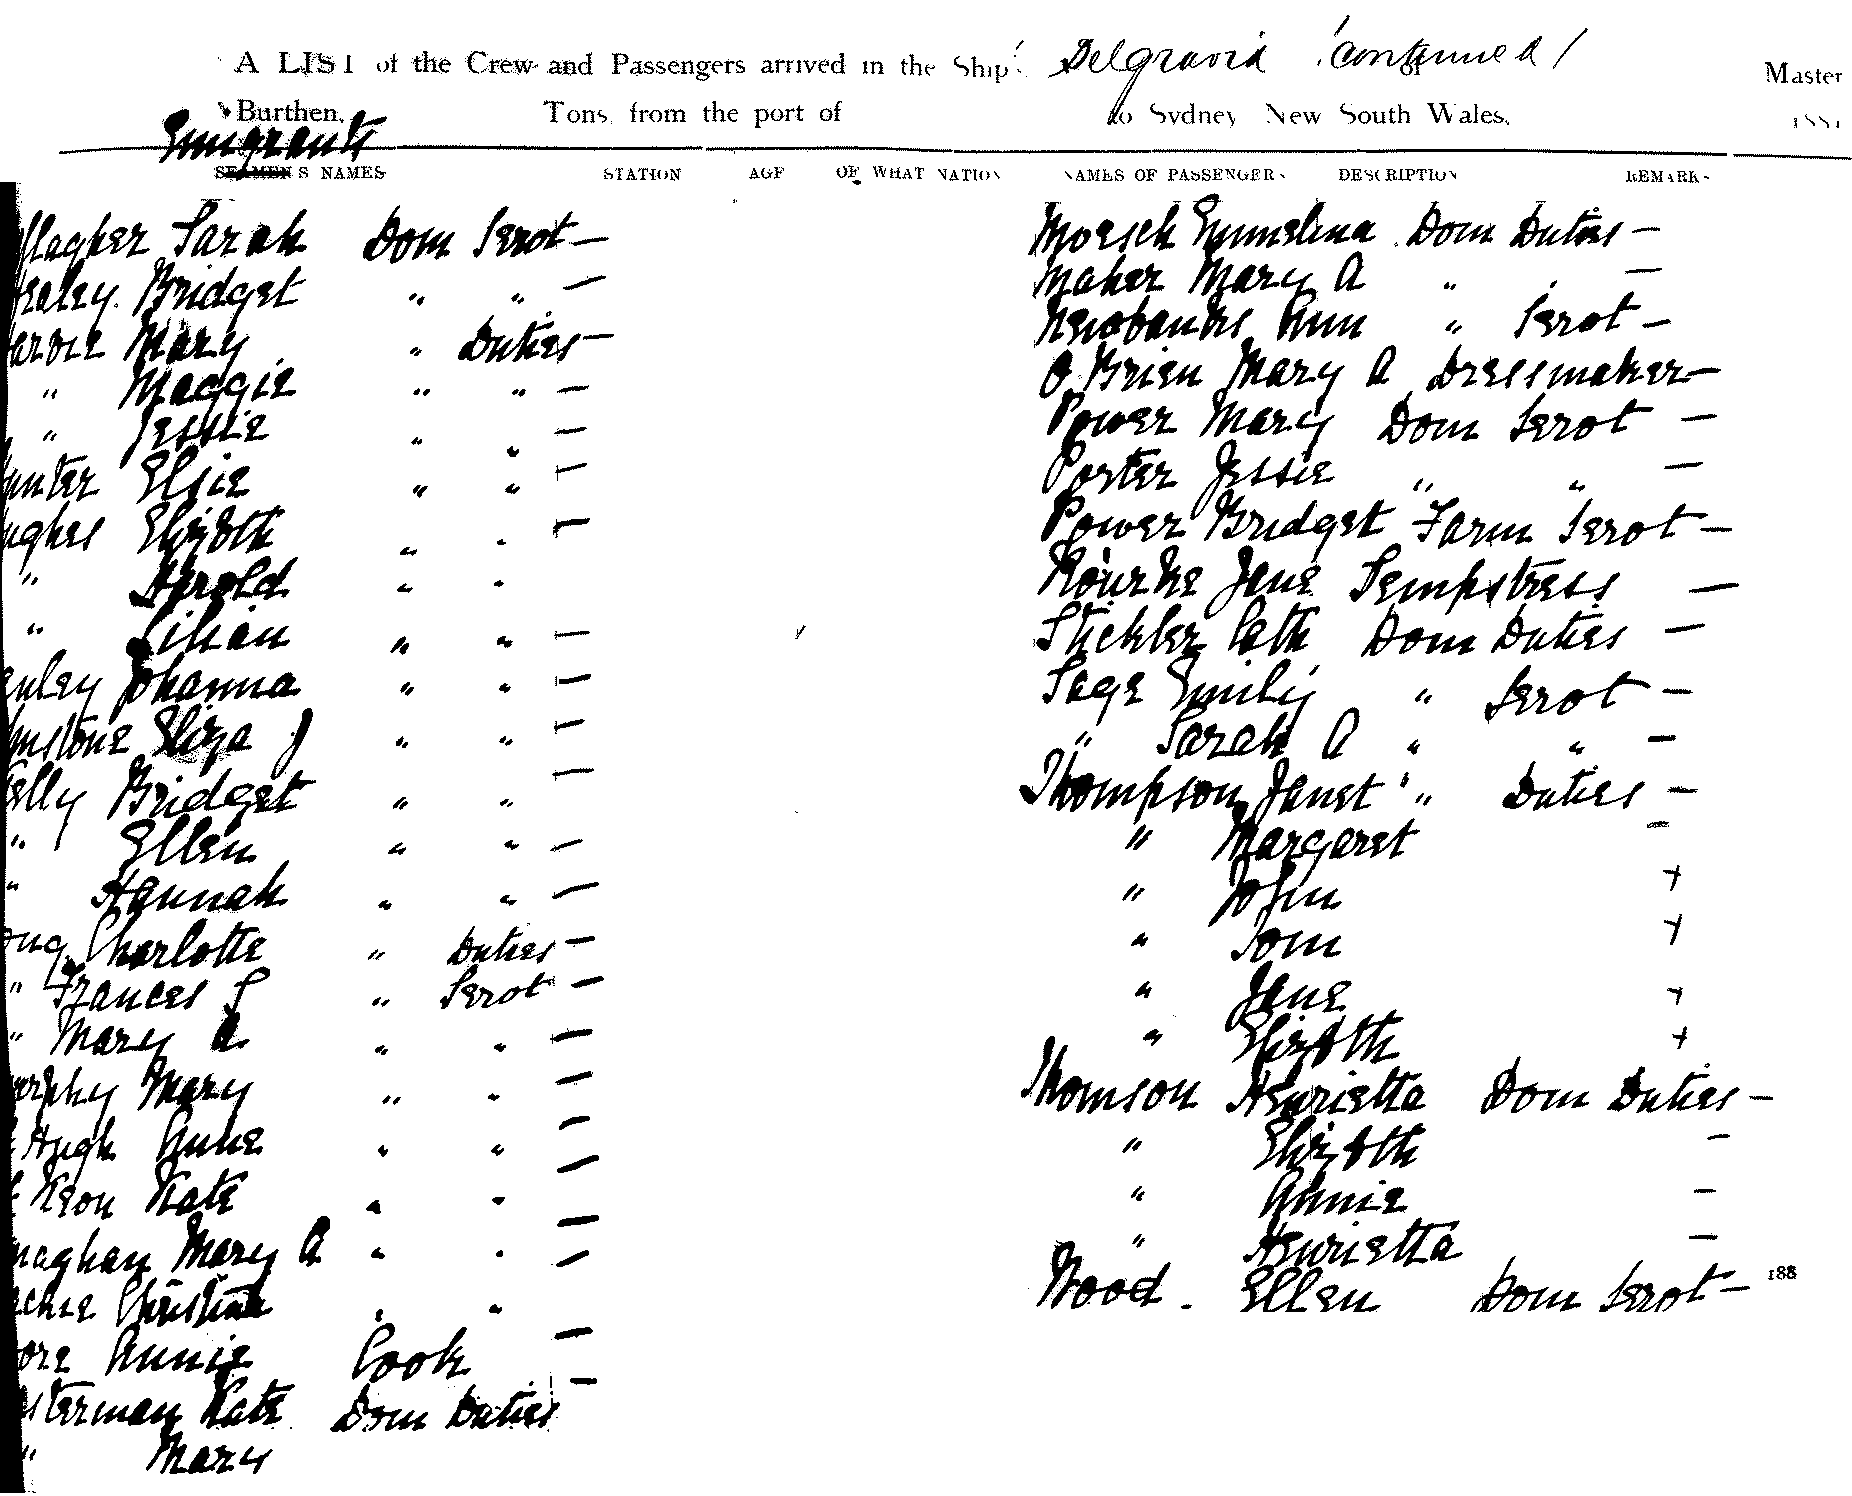 A LIST of the Crew and Passengers arrived in the Ship Belgravia (continued) of Master
Burthen, Tons, from the port of to Sydney New South Wales, 188
Emigrants
SEAMEN'S NAMES STATION AGE OF WHAT NATION NAMES OF PASSENGERS DESCRIPTION REMARKS
llagher Sarah Dom Servt —
ealey Bridget " " —
Mary " Duties —
" Maggie " " —
" Jessie " " —
unter Elsie " " —
ughes Elizbth " " —
" Harold " "
" Lilian " " —
anley Johanna " " —
hnstone Eliza J " " —
elly Bridget " " —
" Ellen " " —
" Hannah " " —
ong Charlotte " Duties —
" Frances S " Servt —
" Mary A " " —
urphy Mary " " —
Hugh Anne " " —
Keon Kate " " —
naghan Mary A " " —
Christina " " —
ore Annie Cook —
sterman Kate Dom Duties —
" Mary
Moesch Emmelina Dom Duties —
Maher Mary A " " —
Newbanks Ann " Servt —
O'Brien Mary A Dressmaker —
Power Mary Dom Servt —
Porter Jessie " " —
Power Bridget Farm Servt —
Rourke Jane Sempstress —
Stickler Cath Dom Duties —
Sage Emily " Servt —
" Sarah A " " —
Thompson Janet " Duties —
" Margaret —
" John +
" Tom +
" Jane +
" Elizbth +
Thomson Henrietta Dom Duties —
" Elizbth —
" Annie —
" Henrietta —
Wood Ellen Dom Servt —
188